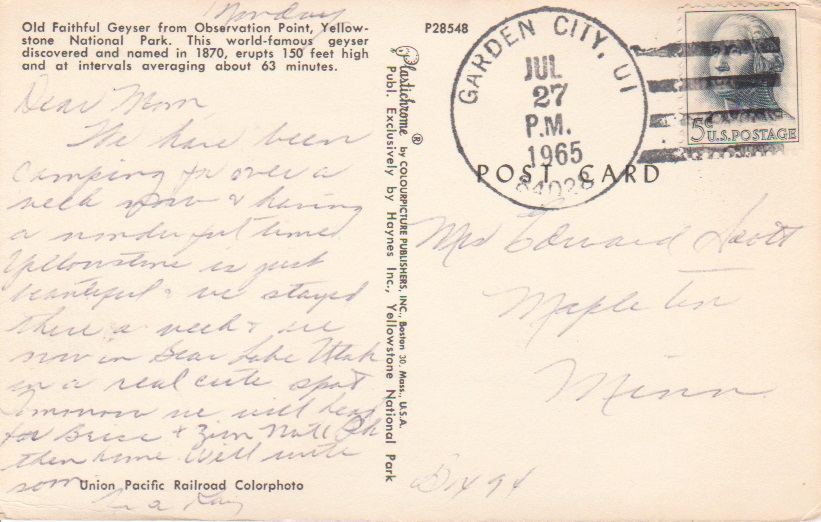 Monday
Old Faithful Geyser from Observation Point, Yellow-
stone National Park. This world-famous geyser
discovered and named in 1870, erupts 150 feet high
and at intervals averaging about 63 minutes.
Dear Mom,
We have been
camping for over a
week now & having
a wonderful time
Yellowstone is just
beautiful & we stayed
there a week & are
now in Bear Lake Utah
in a real cute spot
Tomorrow we will head
for Bryce & Zion Natl Pk
then home Will write
soon
Union Pacific Railroad Colorphoto
Plastichrome ® by COLOURPICTURE PUBLISHERS, INC., Boston 30, Mass., U.S.A.
Publ. Exclusively by Haynes Inc., Yellowstone National Park
P28548
GARDEN CITY, UT
JUL
27
P.M.
1965
84028
5¢ U.S. POSTAGE
POST CARD
Mrs Edward Scott
Mapleton
Minn
Bx 94